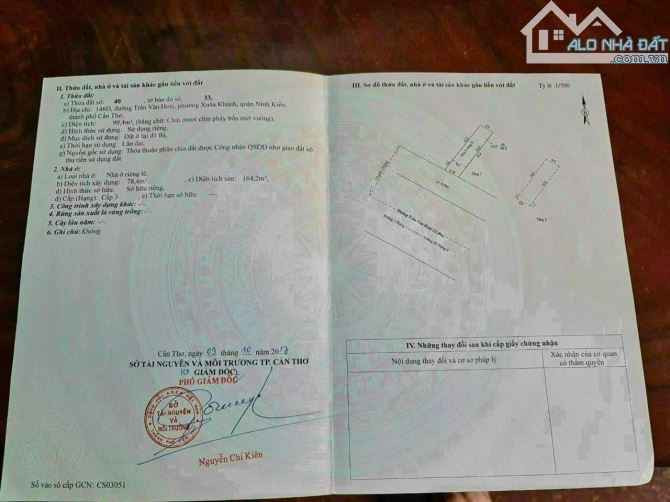 ALO NHÀ ĐẤT
II. Thửa đất, nhà ở và tài sản khác gắn liền với đất
1. Thửa đất:
a) Thửa đất số: 40 , tờ bản đồ số: 33,
b) Địa chỉ: 146D, đường Trần Văn Hoài, phường Xuân Khánh, quận Ninh Kiều,
thành phố Cần Thơ,
c) Diện tích: 99,4m², (bằng chữ: Chín mươi chín phẩy bốn mét vuông),
d) Hình thức sử dụng: Sử dụng riêng,
đ) Mục đích sử dụng: Đất ở tại đô thị,
e) Thời hạn sử dụng: Lâu dài,
g) Nguồn gốc sử dụng: Thỏa thuận phân chia đất được Công nhận QSDĐ như giao đất có
thu tiền sử dụng đất.
2. Nhà ở:
a) Loại nhà ở: Nhà ở riêng lẻ,
b) Diện tích xây dựng: 78,4m², c) Diện tích sàn: 164,2m²,
d) Hình thức sở hữu: Sở hữu riêng,
đ) Cấp (Hạng): Cấp 3 , e) Thời hạn sở hữu: -/-.
3. Công trình xây dựng khác: -/-.
4. Rừng sản xuất là rừng trồng: -/-.
5. Cây lâu năm: -/-.
6. Ghi chú: Không.
Cần Thơ, ngày 09 tháng 10 năm 2017
SỞ TÀI NGUYÊN VÀ MÔI TRƯỜNG TP. CẦN THƠ
GIÁM ĐỐC
PHÓ GIÁM ĐỐC
SỞ
TÀI NGUYÊN
VÀ
MÔI TRƯỜNG
Nguyễn Chí Kiên
Số vào sổ cấp GCN: CS03051
III. Sơ đồ thửa đất, nhà ở và tài sản khác gắn liền với đất
Tỷ lệ 1/500
Tầng 2
IV. Những thay đổi sau khi cấp giấy chứng nhận
Nội dung thay đổi và cơ sở pháp lý
Xác nhận của cơ quan
có thẩm quyền